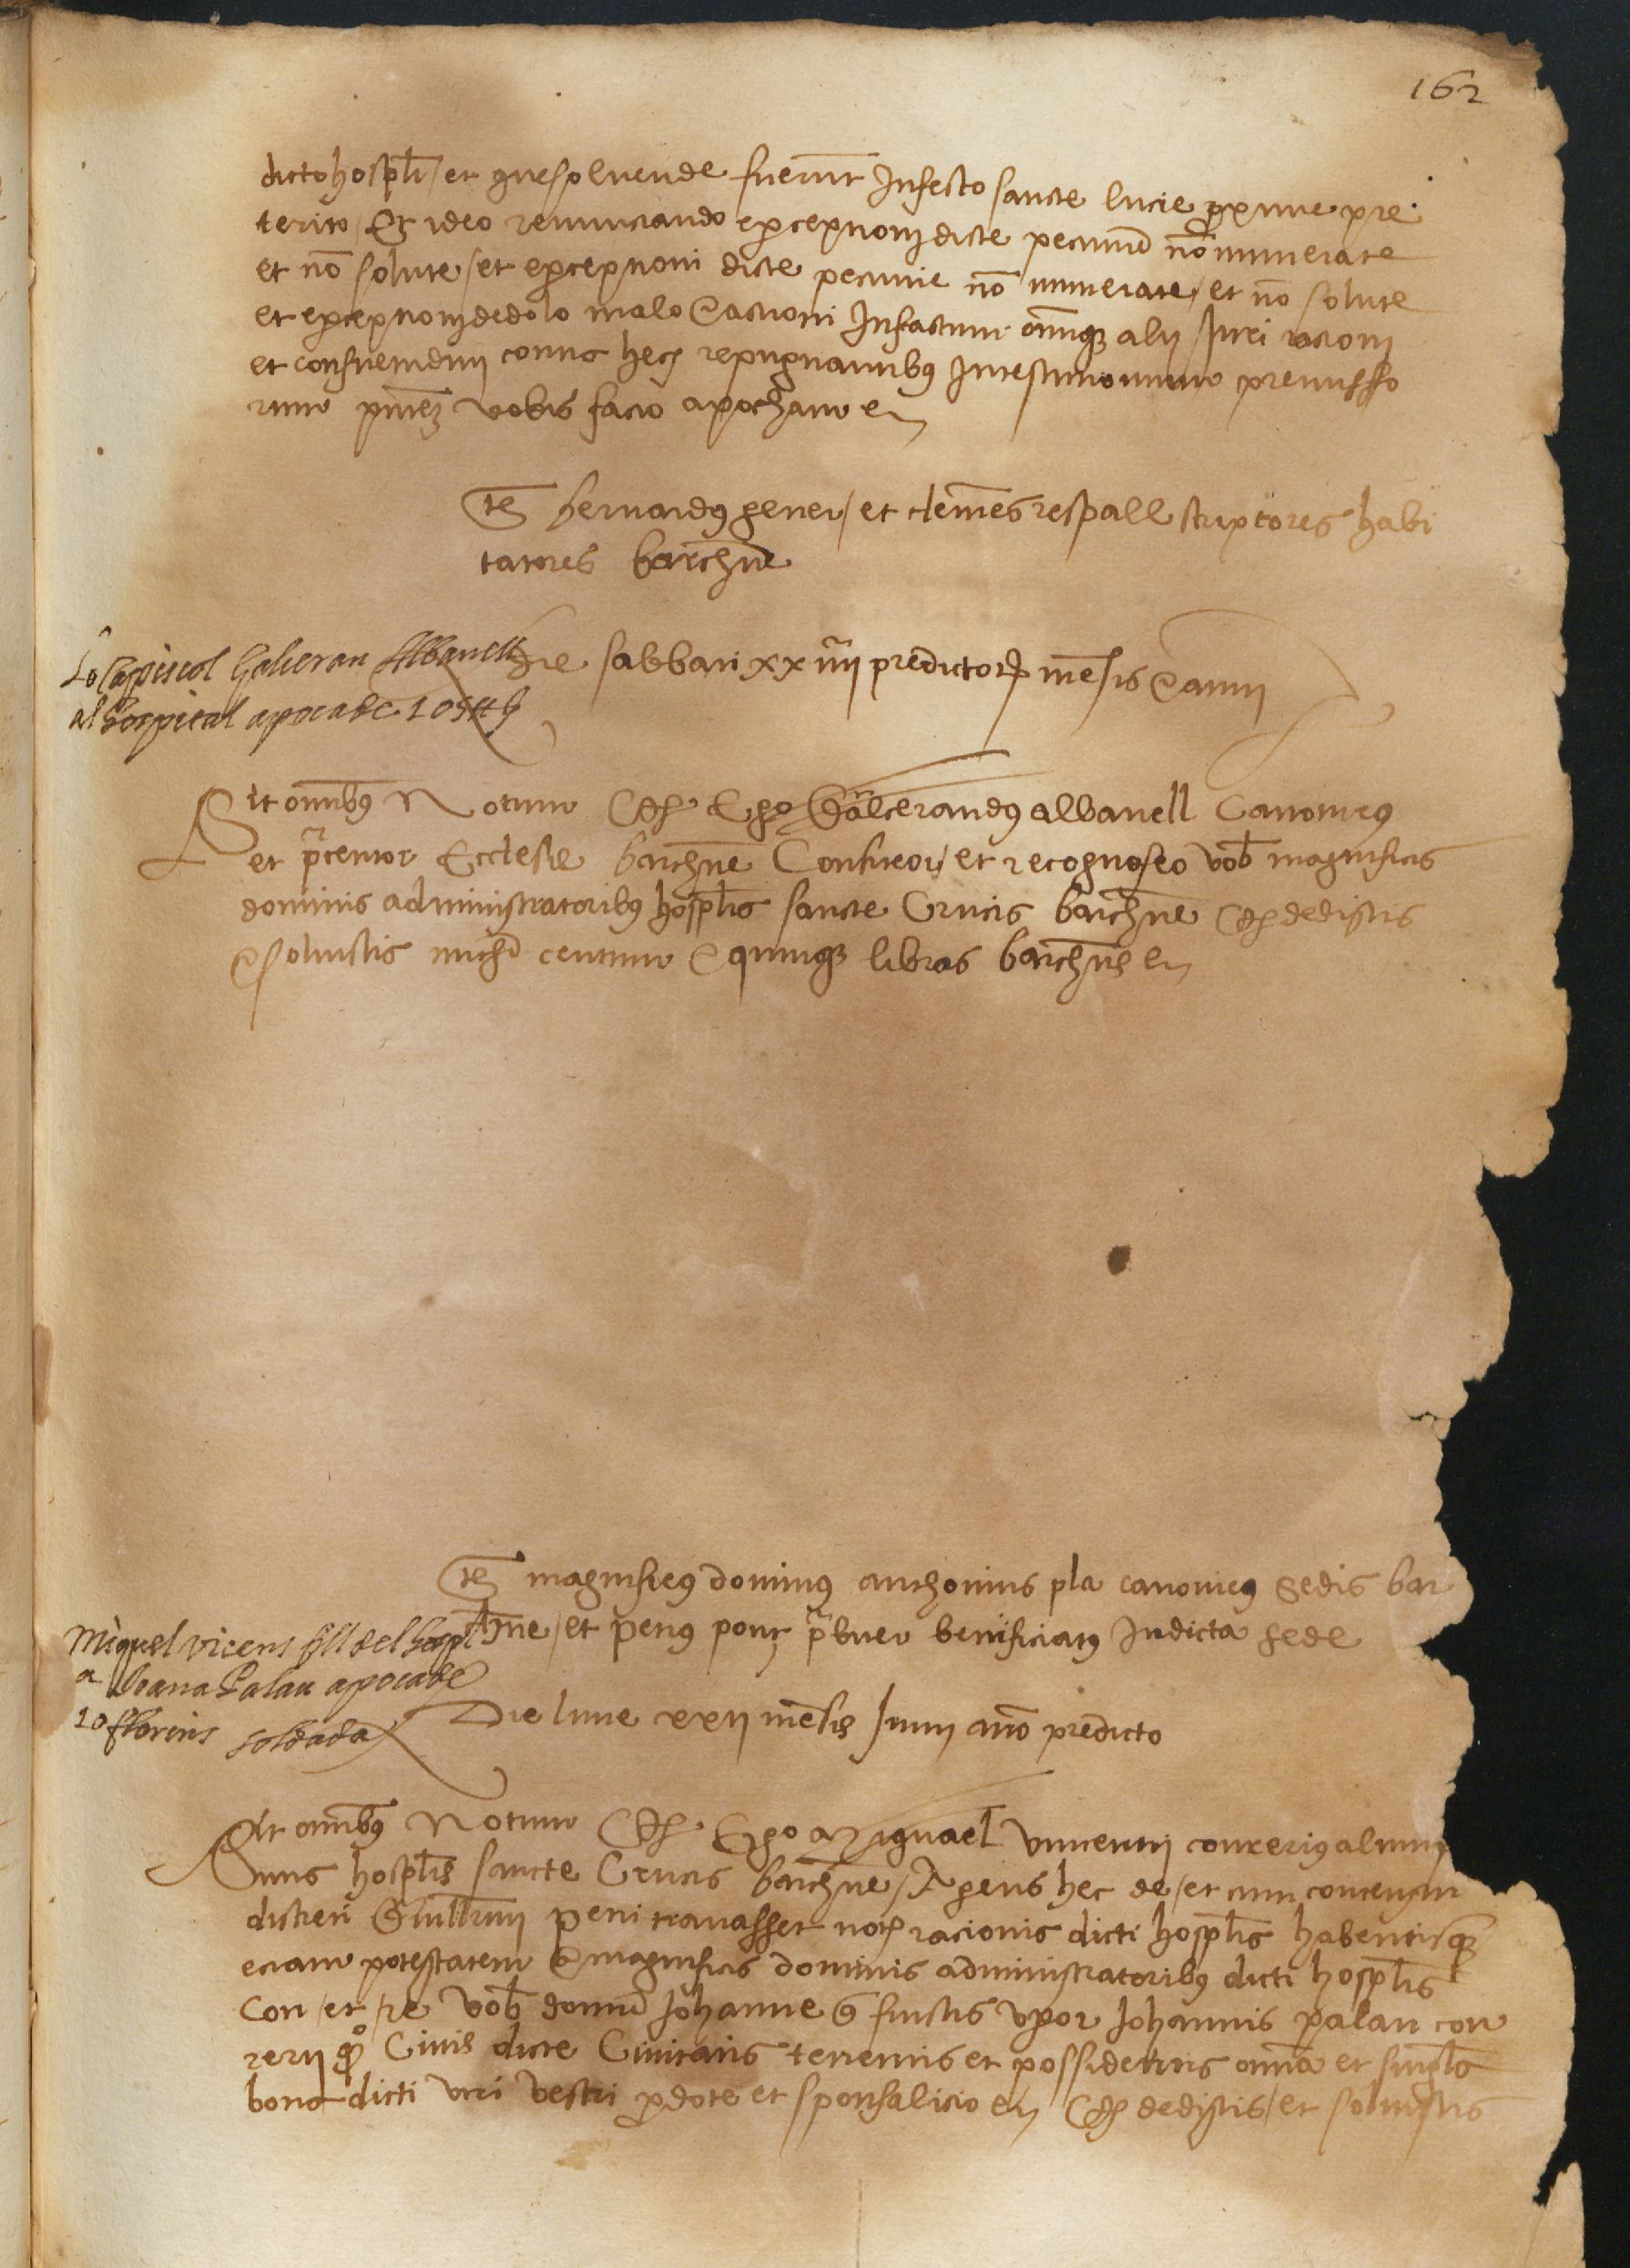 162
dicto hospli / et que solvende fuerunt In festo sancte lucie proxime pre
terito / Et ideo renunciando exceptioni dicte pecunie no numerate
et no solute / et exceptioni dicte pecunie no numerate / et no solute
et exceptioni de dolo malo & actioni In factum omniq alii Juri racioni
et consuetudini contra hec repugnantibus In testimonium premisso
rum pntem vobis facio apocham &c
Te bernardus gener / et clemes respall scriptores habi
tatores barchne
Lo Capiscol Galceran Albanell
al hospital apoca de 105 ll
Die sabbati xx iiii predictorum mesis & anni
Sit omibus Notum Q Ego Galcerandus albanell Canonicus
et pcentor Ecclesie barchne Confiteor / et recognosco vob magnificis
dominis administratoribus hosplis sancte Crucis barchne Q dedistis
& solvistis michi centum & quinq libras barchn &c
Te magnificus dominus anthonius pla canonicus sedis bar
chne / et petrus pont pbuer beneficiatus In dicta sede
Miquel vicens fill del hospl
a Joana Palau apoca de
10 florins soldada
Die lune xxii mesis Junii ano predicto
Sit omibus Notum Q Ego Miquael vincentii correrius alumnus
unus hosplis sancte Crucis barchne / Agens hec de / et cum
discreti Guillermi Peni travasset not racionis dicti hosplis habentisq
eciam potestatem & magnificis dominis administratoribus dicti hosplis
Con / et / re vob domine Johanne que fuistis uxor Johannis palau cor
rerii quo Civis dicte Civitatis tenentis et possidentis omnia et singla
bona dicti viri vestri pro dote et sponsalicio &c Q dedistis / et solvistis